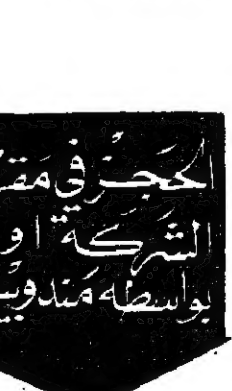 الحَجْز في مَقر
الشركة او
بواسطة مَندوبي